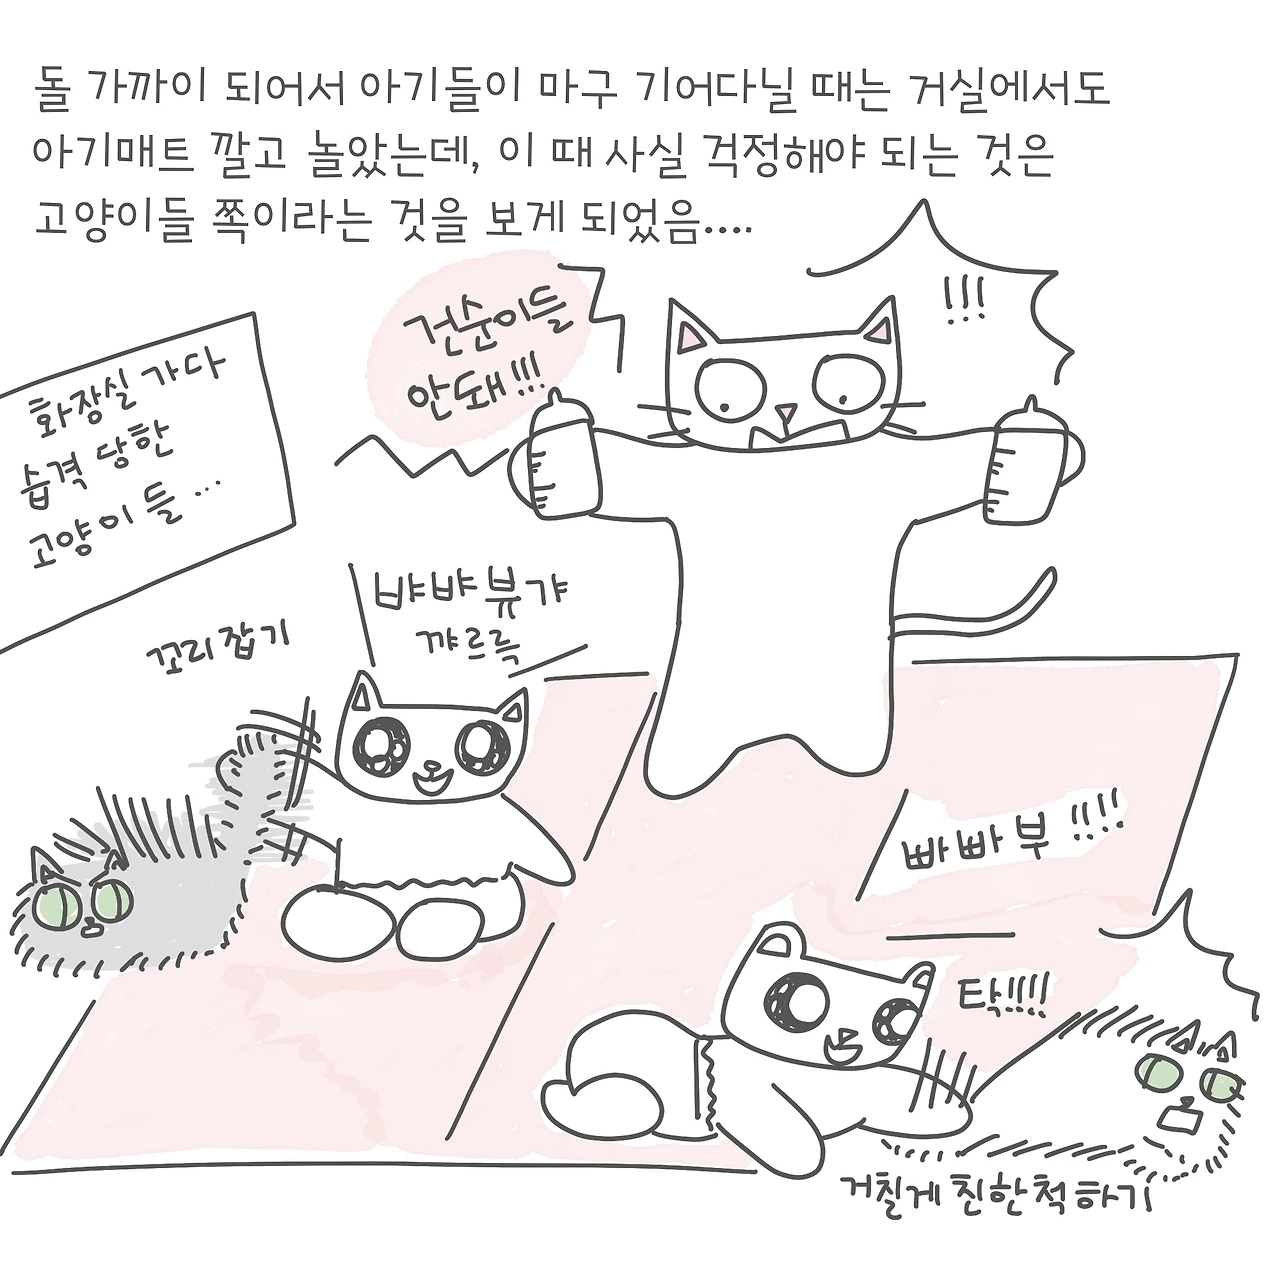 돌 가까이 되어서 아기들이 마구 기어다닐 때는 거실에서도
아기매트 깔고 놀았는데, 이 때 사실 걱정해야 되는 것은
고양이들 쪽이라는 것을 보게 되었음....
건순이들
안돼!!!
!!!
화장실 가다
습격 당한
고양이들...
뱌뱌뷰갸
꺄르륵
꼬리잡기
빠빠부!!!!
탁!!!!
거칠게 친한척하기